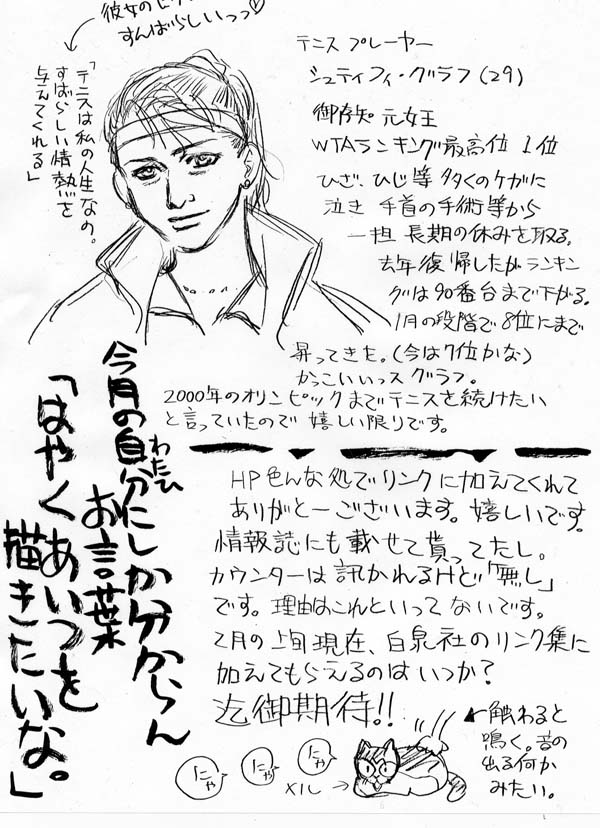 彼女の
すんばらしいっっ♡
「テニスは私の人生なの。
すばらしい情熱を
与えてくれる」
テニス プレーヤー
シュティフィ・グラフ(29)
御存知 元女王
WTAランキング最高位 1位
ひざ、ひじ等 多くのケガに
泣き 手首の手術等から
一担 長期の休みを取る。
去年復帰したがランキン
グは90番台まで下がる。
1月の段階で8位にまで
昇ってきた。(今は7位かな)
かっこいいっス グラフ。
2000年のオリンピックまでテニスを続けたい
と言っていたので 嬉しい限りです。
今月の自分にしか分からん
わたし
お言葉
「はやくあいつを
描きたいな。」
HP色んな処でリンクに加えてくれて
ありがとーございます。嬉しいです。
情報誌にも載せて貰ってたし。
カウンターは訊かれるけど「無し」
です。理由はこれといってないです。
2月の上旬現在、白泉社のリンク集に
加えてもらえるのはいつか?
迄御期待!!
←触わると
鳴く。音の
出る何か
みたい。
にゃ
にゃ
にゃ
メル→